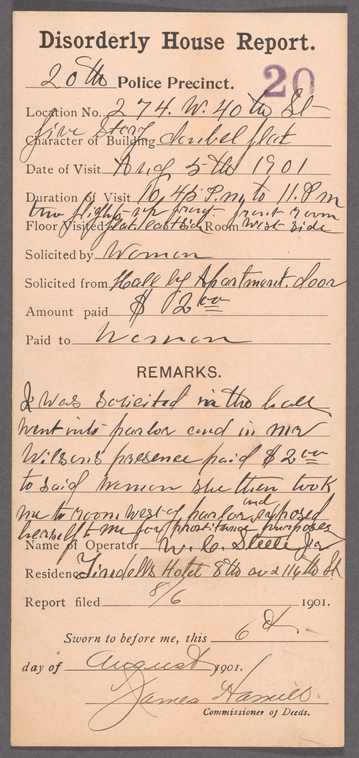 Disorderly House Report.
20th Police Precinct. 20
Location No. 274. W. 40th St
five Story
Character of Building doubel flat
Date of Visit Aug 5th 1901
Duration of Visit 10.45 P.m, to 11. P m
two flights up front room
Floor Visited flat east side Room West Side
Solicited by Woman
Solicited from Hall by Apartment. door
Amount paid $ 2 00
Paid to Woman
REMARKS.
I was solicited in the hall
went into parlor and in mr
Wilson's presence paid $ 2 00
to said Woman she then took
me to room west of parlor and exposed
herself to me for prostitution purposes
Name of Operator W. C. Steele Jr
Residence Hotel 8th av & 116th St
Report filed 8/6 1901.
Sworn to before me, this 6th
day of August 1901.
James Hamill.
Commissioner of Deeds.